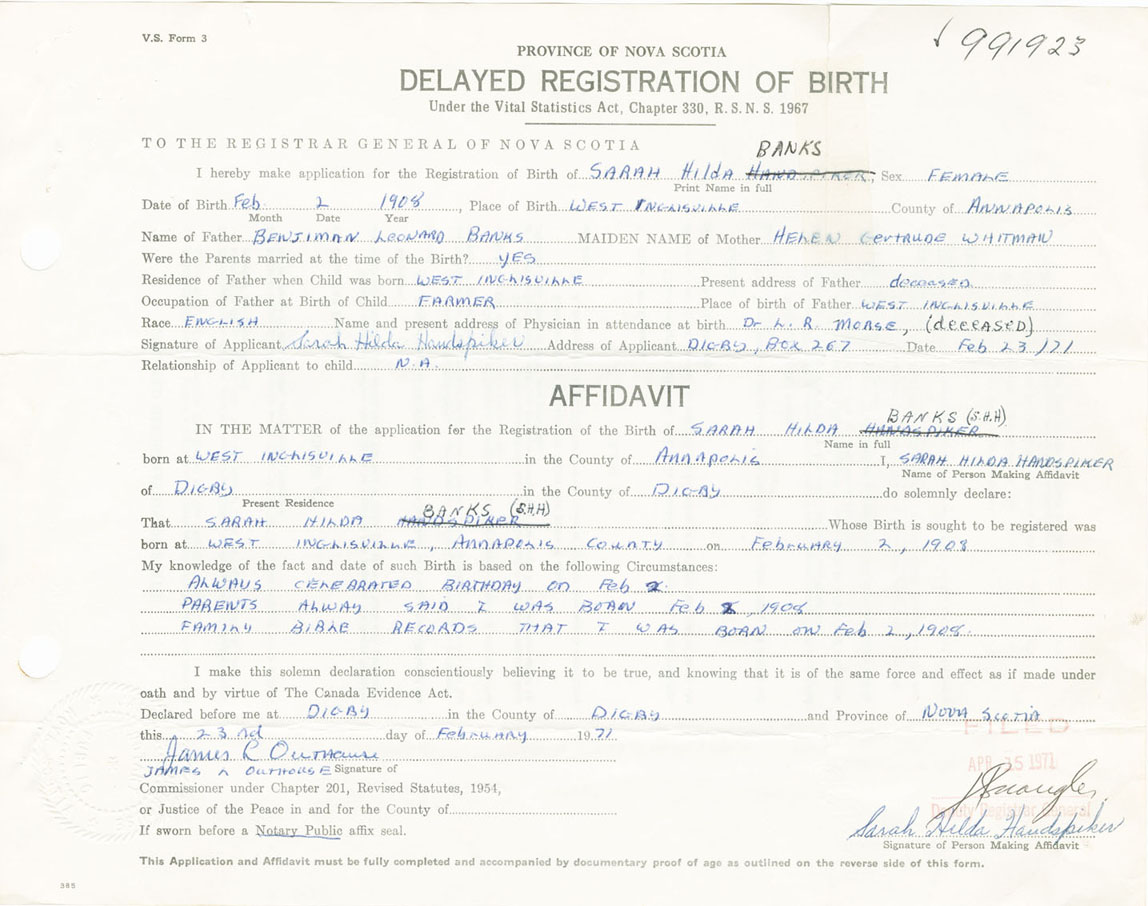 V.S. Form 3
991923
PROVINCE OF NOVA SCOTIA
DELAYED REGISTRATION OF BIRTH
Under the Vital Statistics Act, Chapter 330, R.S.N.S. 1967
TO THE REGISTRAR GENERAL OF NOVA SCOTIA
BANKS
I hereby make application for the Registration of Birth of SARAH Hilda HANDSPIKER, Sex FEMALE
Print Name in full
Date of Birth Feb 2 1908, Place of Birth WEST INGLISVILLE County of ANNAPOLIS
Month Date Year
Name of Father BENJIMAN LEONARD BANKS MAIDEN NAME of Mother HELEN GERTRUDE WHITMAN
Were the Parents married at the time of the Birth? YES
Residence of Father when Child was born WEST INGLISVILLE Present address of Father deceased
Occupation of Father at Birth of Child FARMER Place of birth of Father WEST INGLISVILLE
Race ENGLISH Name and present address of Physician in attendance at birth Dr L. R. MORSE, (deceASED)
Signature of Applicant Sarah Hilda Handspiker Address of Applicant DIGBY, BOX 267 Date Feb 23/71
Relationship of Applicant to child N.A.
AFFIDAVIT
BANKS (S.H.H)
IN THE MATTER of the application for the Registration of the Birth of SARAH HILDA HANDSPIKER
Name in full
born at WEST INGLISVILLE in the County of ANNAPOLIS I, SARAH HILDA HANDSPIKER
Name of Person Making Affidavit
of DIGBY in the County of DIGBY do solemnly declare:
Present Residence
BANKS (S.H.H)
That SARAH HILDA HANDSPIKER Whose Birth is sought to be registered was
born at WEST INGLISVILLE, ANNAPOLIS COUNTY on February 2, 1908
My knowledge of the fact and date of such Birth is based on the following Circumstances:
ALWAYS CELEBRATED BIRTHDAY ON Feb 2.
PARENTS ALWAY SAID I WAS BORN Feb 2, 1908
FAMILY BIBLE RECORDS THAT I WAS BORN ON Feb 2, 1908.
I make this solemn declaration conscientiously believing it to be true, and knowing that it is of the same force and effect as if made under
oath and by virtue of The Canada Evidence Act.
Declared before me at DIGBY in the County of DIGBY and Province of NOVA SCOTIA
this 23rd day of February 1971
FILED
APR 15 1971
Deputy Registrar General
James R Outhouse
JAMES R OUTHOUSE Signature of
Commissioner under Chapter 201, Revised Statutes, 1954,
or Justice of the Peace in and for the County of
If sworn before a Notary Public affix seal.
Sarah Hilda Handspiker
Signature of Person Making Affidavit
This Application and Affidavit must be fully completed and accompanied by documentary proof of age as outlined on the reverse side of this form.
385